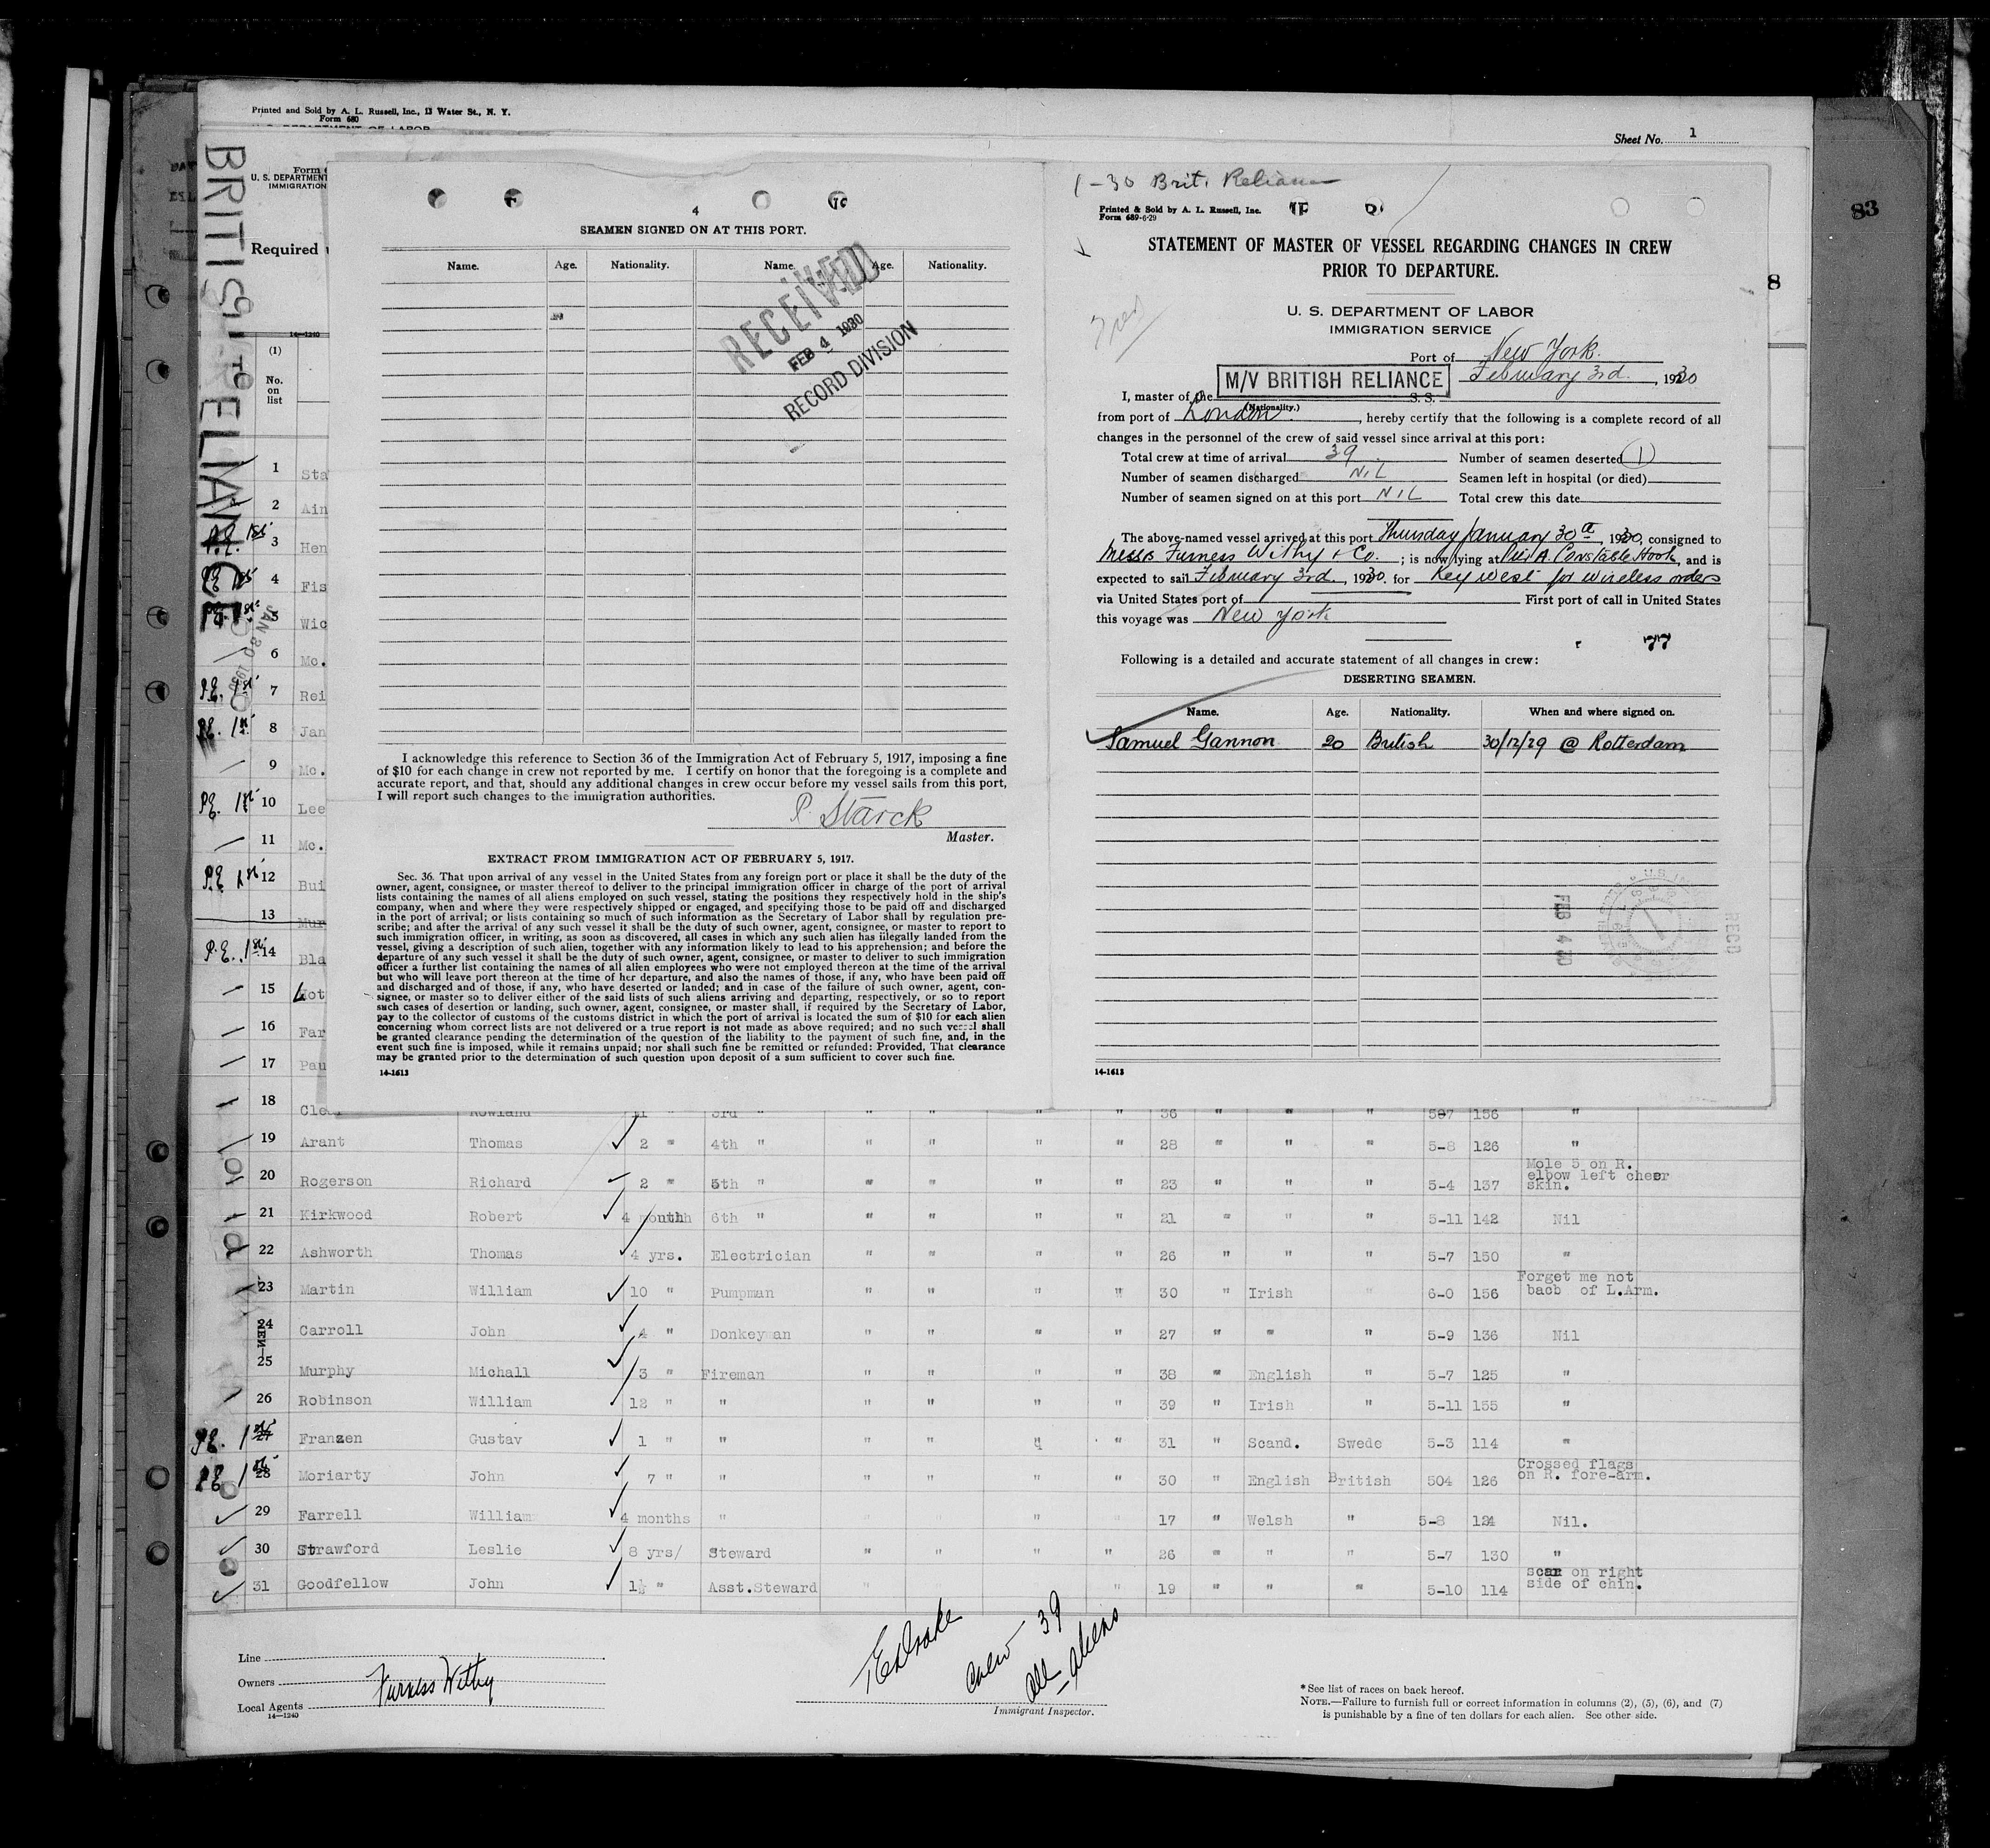 Printed and Sold by A. L. Russell, Inc., 13 Water St., N. Y.
Form 680
Sheet No. 1
BRITISH RELIANCE
U. S. DEPARTMENT
IMMIGRATION
Required
14—1240
(1)
No. on list
83
8
JAN 30 1930
4
SEAMEN SIGNED ON AT THIS PORT.
Name. Age. Nationality. Name. Age. Nationality.
RECEIVED
FEB 4 1930
RECORD DIVISION
I acknowledge this reference to Section 36 of the Immigration Act of February 5, 1917, imposing a fine
of $10 for each change in crew not reported by me. I certify on honor that the foregoing is a complete and
accurate report, and that, should any additional changes in crew occur before my vessel sails from this port,
I will report such changes to the immigration authorities.
P. Starck
Master.
EXTRACT FROM IMMIGRATION ACT OF FEBRUARY 5, 1917.
Sec. 36. That upon arrival of any vessel in the United States from any foreign port or place it shall be the duty of the
owner, agent, consignee, or master thereof to deliver to the principal immigration officer in charge of the port of arrival
lists containing the names of all aliens employed on such vessel, stating the positions they respectively hold in the ship's
company, when and where they were respectively shipped or engaged, and specifying those to be paid off and discharged
in the port of arrival; or lists containing so much of such information as the Secretary of Labor shall by regulation pre-
scribe; and after the arrival of any such vessel it shall be the duty of such owner, agent, consignee, or master to report to
such immigration officer, in writing, as soon as discovered, all cases in which any such alien has illegally landed from the
vessel, giving a description of such alien, together with any information likely to lead to his apprehension; and before the
departure of any such vessel it shall be the duty of such owner, agent, consignee, or master to deliver to such immigration
officer a further list containing the names of all alien employees who were not employed thereon at the time of the arrival
but who will leave port thereon at the time of her departure, and also the names of those, if any, who have been paid off
and discharged and of those, if any, who have deserted or landed; and in case of the failure of such owner, agent, con-
signee, or master so to deliver either of the said lists of such aliens arriving and departing, respectively, or so to report
such cases of desertion or landing, such owner, agent, consignee, or master shall, if required by the Secretary of Labor,
pay to the collector of customs of the customs district in which the port of arrival is located the sum of $10 for each alien
concerning whom correct lists are not delivered or a true report is not made as above required; and no such vessel shall
be granted clearance pending the determination of the question of the liability to the payment of such fine, and, in the
event such fine is imposed, while it remains unpaid; nor shall such fine be remitted or refunded: Provided, That clearance
may be granted prior to the determination of such question upon deposit of a sum sufficient to cover such fine.
14-1613
1-30 Brit. Reliance
Printed & Sold by A. L. Russell, Inc.
Form 689-6-29
STATEMENT OF MASTER OF VESSEL REGARDING CHANGES IN CREW
PRIOR TO DEPARTURE.
U. S. DEPARTMENT OF LABOR
IMMIGRATION SERVICE
Port of New York.
February 3rd., 1930
M/V BRITISH RELIANCE
I, master of the S. S.
(Nationality.)
from port of London, hereby certify that the following is a complete record of all
changes in the personnel of the crew of said vessel since arrival at this port:
Total crew at time of arrival 39. Number of seamen deserted 1
Number of seamen discharged NIL Seamen left in hospital (or died)
Number of seamen signed on at this port NIL Total crew this date
The above-named vessel arrived at this port Thursday January 30th 1930, consigned to
Messrs Furness Withy & Co.; is now lying at Pier A. Constable Hook, and is
expected to sail February 3rd, 1930. for Key West for wireless orders
via United States port of First port of call in United States
this voyage was New York
Following is a detailed and accurate statement of all changes in crew:
DESERTING SEAMEN.
Name. Age. Nationality. When and where signed on.
Samuel Gannon 20 British 30/12/29 @ Rotterdam
FEB 4 30
RECD
14-1613
1 Sta
2 Ain
P.E. 1st 3 Hen
P.E. 1st 4 Fis
P.E. 1st 5 Wic
6 Mc.
P.E. 1st 7 Rei
P.E. 1st 8 Jan
9 Mc.
P.E. 1st 10 Lee
11 Mc.
P.E. 1st 12 Bui
13 Mur
P.E. 1st 14 Bla
15 Lot
16 Far
17 Pau
18 Cle Rowland 11 " 3rd " " " " " 36 " " " 507 156 "
19 Arant Thomas 2 " 4th " " " " " 28 " " " 5-8 126 "
20 Rogerson Richard 2 " 5th " " " " " 23 " " " 5-4 137 Mole 5 on R. elbow left cheer skin.
21 Kirkwood Robert 4 mouthh 6th " " " " " 21 " " " 5-11 142 Nil
22 Ashworth Thomas 4 yrs. Electrician " " " " 26 " " " 5-7 150 "
23 Martin William 10 " Pumpman " " " " 30 " Irish " 6-0 156 Forget me not bacb of L.Arm.
24 Carroll John 4 " Donkeyman " " " " 27 " " " 5-9 136 Nil
25 Murphy Michall 3 " Fireman " " " " 38 " English " 5-7 125 "
26 Robinson William 12 " " " " " " 39 " Irish " 5-11 155 "
P.E. 1st 27 Franzen Gustav 1 " " " " " " 31 " Scand. Swede 5-3 114 "
P.E. 1st 28 Moriarty John 7 " " " " " " 30 " English British 504 126 Crossed flags on R. fore-arm.
29 Farrell William 4 months " " " " " 17 " Welsh " 5-8 124 Nil.
30 Strawford Leslie 8 yrs/ Steward " " " " 26 " " " 5-7 130 "
31 Goodfellow John 1½ " Asst.Steward " " 19 " " " 5-10 114 scar on right side of chin.
Line
Owners Furness Withy
Local Agents
14—1240
Crew 39
all aliens
Immigrant Inspector.
* See list of races on back hereof.
NOTE.—Failure to furnish full or correct information in columns (2), (5), (6), and (7)
is punishable by a fine of ten dollars for each alien. See other side.